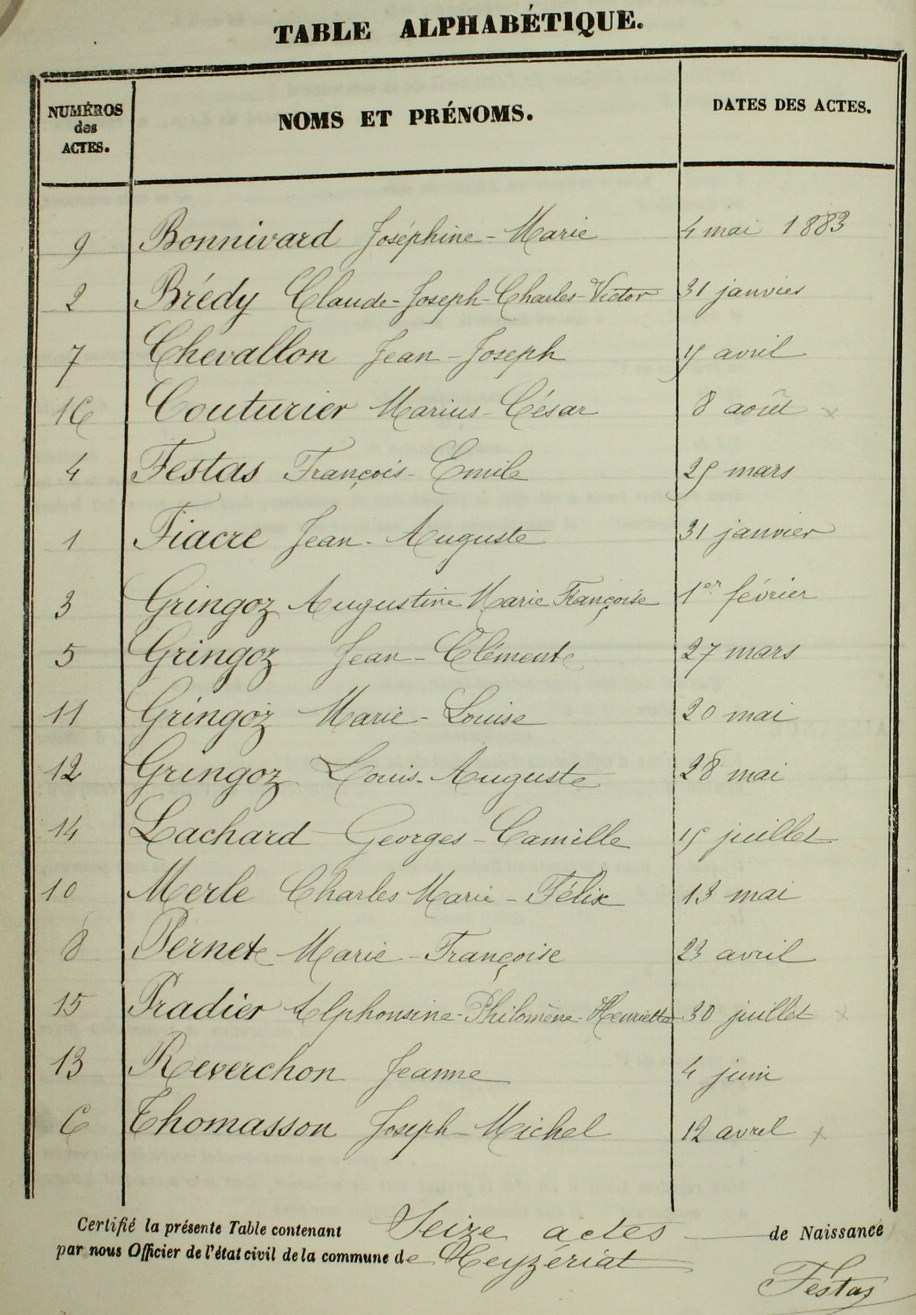 TABLE ALPHABÉTIQUE.
NUMÉROS des ACTES. NOMS ET PRÉNOMS. DATES DES ACTES.
9 Bonnivard Joséphine-Marie 4 mai 1883
2 Brédy Claude-Joseph-Charles-Victor 31 janvier
7 Chevallon Jean-Joseph avril
16 Couturier Marius-César 8 août x
4 Festas François-Emile 25 mars
1 Fiacre Jean-Auguste 31 janvier
3 Gringoz Augustine Marie Françoise 1er février
5 Gringoz Jean-Clément 27 mars
11 Gringoz Marie-Louise 20 mai
12 Gringoz Louis-Auguste 28 mai
14 Lachard Georges-Camille 15 juillet
10 Merle Charles Marie-Félix 13 mai
8 Pernet Marie-Françoise 23 avril
15 Pradier Alphonsine-Philomène-Henriette 30 juillet x
13 Reverchon Jeanne 4 juin
6 Thomasson Joseph-Michel 12 avril x
Certifié la présente Table contenant Seize actes de Naissance
par nous Officier de l'état civil de la commune de Meyzériat
Festas